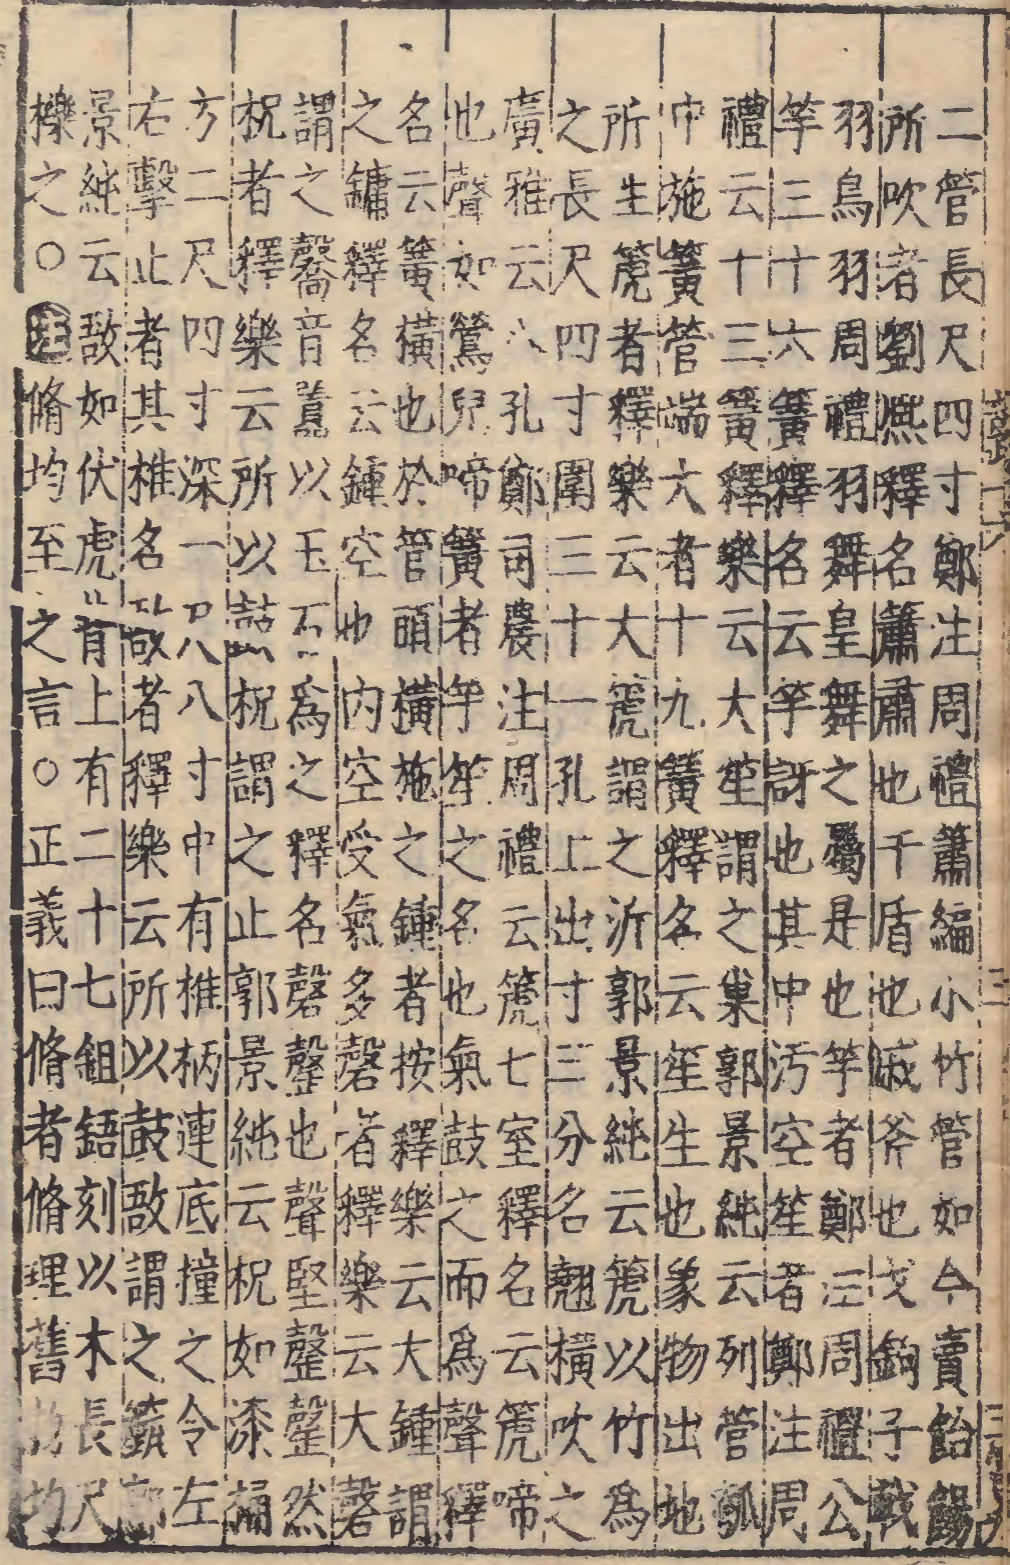 二管長尺四寸鄭注周禮簫編小竹管如今賣飴餳
所吹者劉熈釋名簫肅也干盾也戚斧也戈鉤子戟
羽鳥羽周禮羽舞皇舞之屬是也竽者鄭注周禮公
竽三十六簧釋名云竽訏也其中汚空笙者鄭注周
禮云十三簧釋樂云大笙謂之巢郭景純云列管瓠
中施簧管端大者十九簧釋名云笙生也象物出地
所生箎者釋樂云大箎謂之沂郭景純云箎以竹為
之長尺四寸圍三十一孔上出寸三分名翹橫吹之
廣雅云八孔鄭司農注周禮云箎七室釋名云箎啼
也聲如鶯兒啼簧者竽笙之名也氣鼓之而爲聲釋
名云簧橫也於管頭橫施之鍾者按釋樂云大鍾謂
之鏞釋名云鍾空也内空受氣多磬者釋樂云大磬
謂之毊音嚻以玉石爲之釋名磬罄也聲堅罄罄然
柷者釋樂云所以鼓柷謂之止郭景純云柷如漆桶
方二尺四寸深一尺八寸中有椎柄連底撞之令左
右擊止者其椎名敔者釋樂云所以鼓敔謂之籈郭
景純云敔如伏虎背上有二十七鉏鋙刻以木長尺
櫟之○脩均至之言○正義曰脩者脩理舊物均